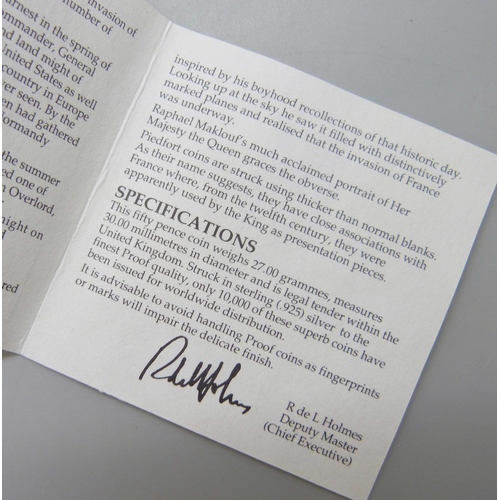 invasion of
number of
ernest in the spring of
ommander, General
nd land might of
United States as well
country in Europe
ver seen. By the
en had gathered
Normandy
the summer
ed one of
n Overlord,
night on
d
ered
inspired by his boyhood recollections of that historic day.
Looking up at the sky he saw it filled with distinctively
marked planes and realised that the invasion of France
was underway.
Raphael Maklouf's much acclaimed portrait of Her
Majesty the Queen graces the obverse.
Piedfort coins are struck using thicker than normal blanks.
As their name suggests, they have close associations with
France where, from the twelfth century, they were
apparently used by the King as presentation pieces.
SPECIFICATIONS
This fifty pence coin weighs 27.00 grammes, measures
30.00 millimetres in diameter and is legal tender within the
United Kingdom. Struck in sterling (.925) silver to the
finest Proof quality, only 10,000 of these superb coins have
been issued for worldwide distribution.
It is advisable to avoid handling Proof coins as fingerprints
or marks will impair the delicate finish.
R de L Holmes
R de L Holmes
Deputy Master
(Chief Executive)